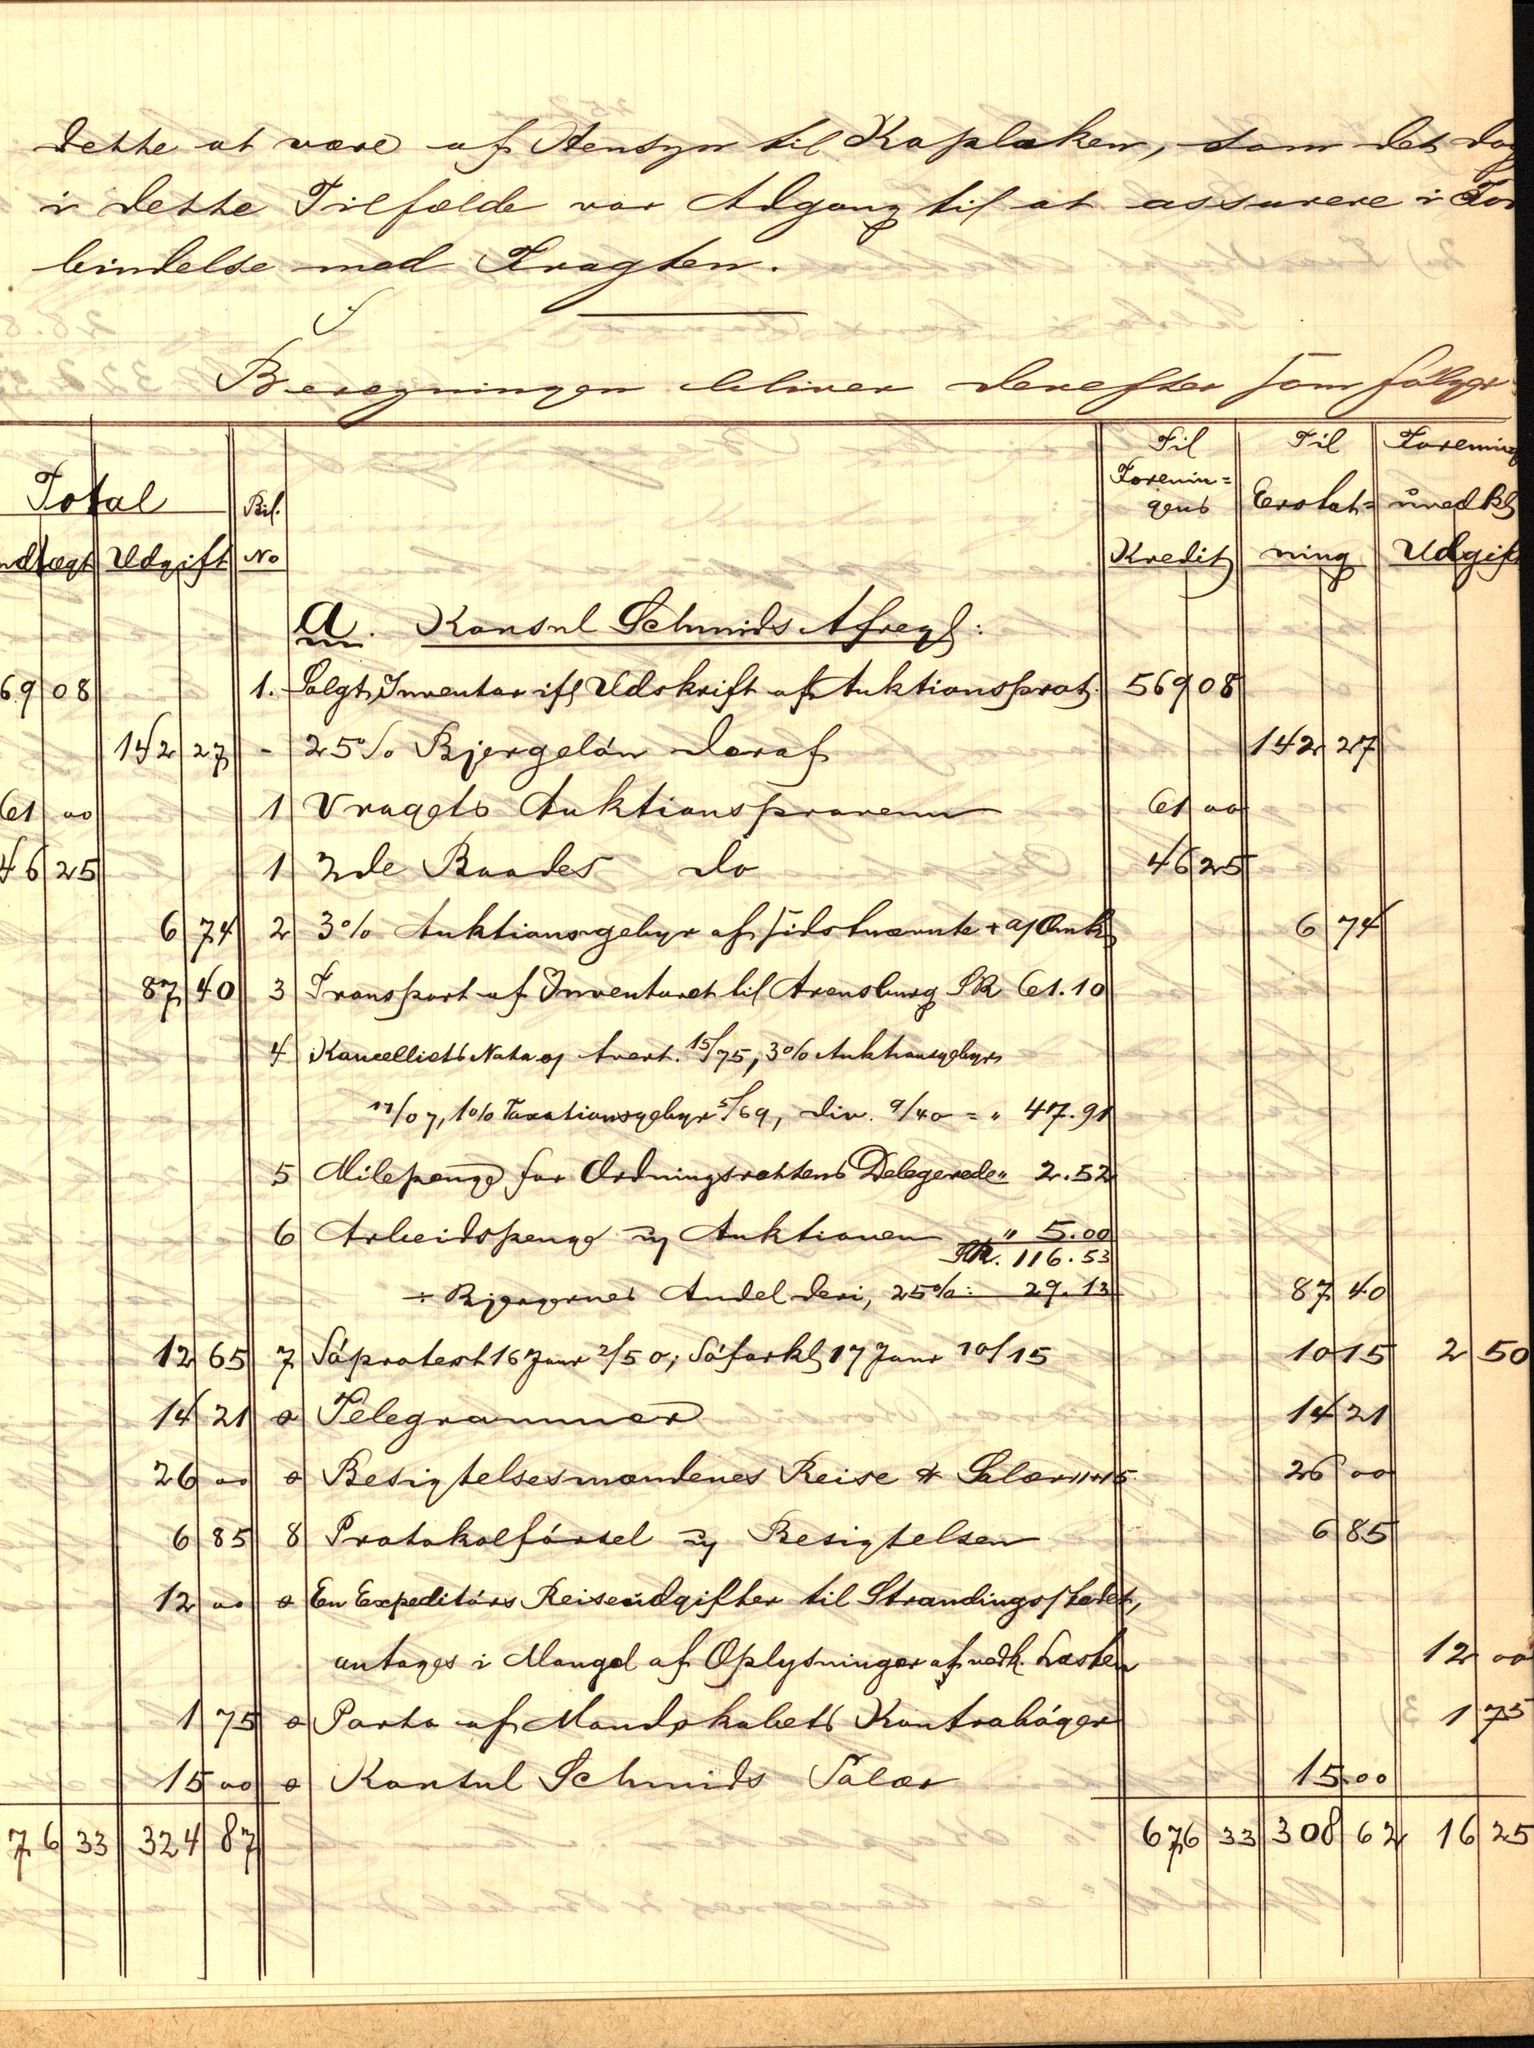 dette at være af Hensyn til Kaplaken, som det dog
i dette Tilfælde var Adgang til at assurere i For
bindelse med Fragten.
Beregningen bliver derefter som følger
Total Bil. Til Foreningens Kredit Til Erstatning Forening uvedk Udgift
Indtægt Udgift No
a. Konsul Schmids Afregf:
69 08 1. Solgt Inventar ifl Udskrift af Auktionsprot. 569 08
142 27 - 25% Bjergeløn deraf 142 27
61 00 1 Vragets Auktionsprovenu 61 00
46 25 1 2de Baades do 46 25
6 74 2 3% Auktionsgebyr af sidstnævnte + a/ Omk 6 74
87 40 3 Transport af Inventaret til Arensburg SR 61.10
4 Kancelliets Nota og Avert. 15/75, 3% Auktionsgebyr
17/07, 1% Taxationsgebyr 5/69, div. 9/40 = " 47.91
5 Milepenge for Ordningsrettens Delegerede " 2.52
6 Arbeidspenge v/ Auktionen " 5.00
SR. 116.53
÷ Bjergernes Andel deri, 25%: 29.13 87 40
12 65 7 Søprotest 16 Janr 2/50; Søforkl 17 Janr 10/15 10 15 2 50
14 21 o Telegrammer 14 21
26 00 o Besigtelsesmændenes Reise & Salær 11+15 26 00
6 85 8 Protokolførsel v/ Besigtelsen 6 85
12 00 o En Expeditørs Reiseudgifter til Strandingsstedet,
antages i Mangel af Oplysninger at vedk. Lasten 12 00
1 75 o Porto af Mandskabets Kontrabøger 1 75
15 00 o Konsul Schmids Salær 15.00
76 33 324 87 676 33 308 62 16 25